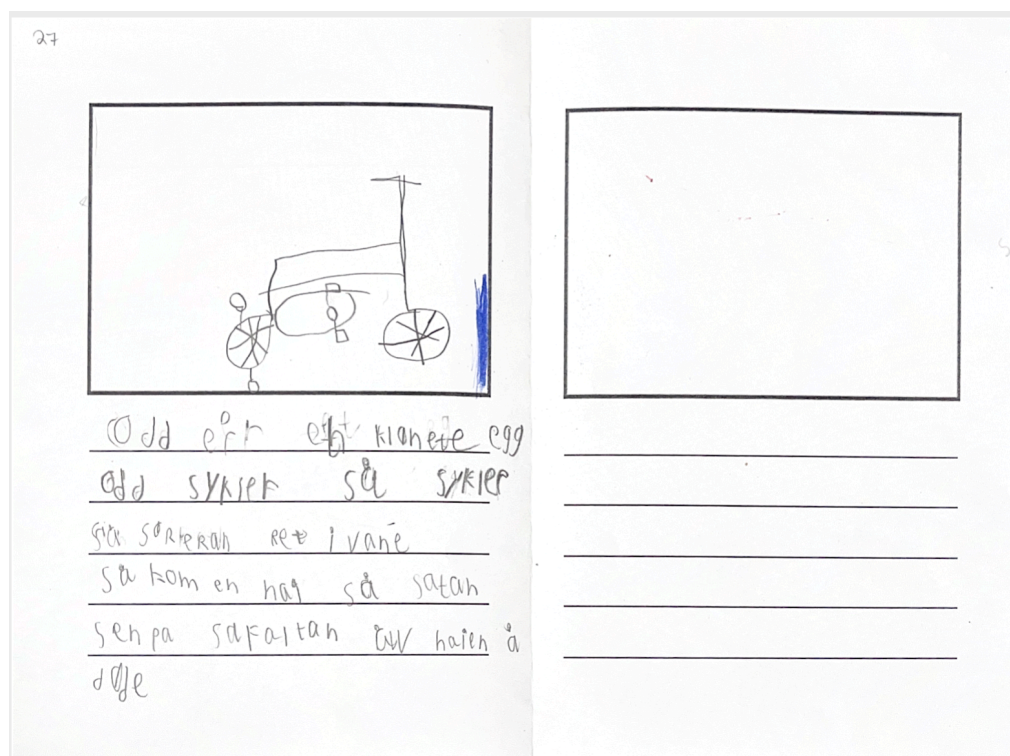 27
Odd err eit klonete egg
odd sykler så sykler
sørkeran ret i vane
så kom en hag så satan
sen pa safaltan av haien å
døe